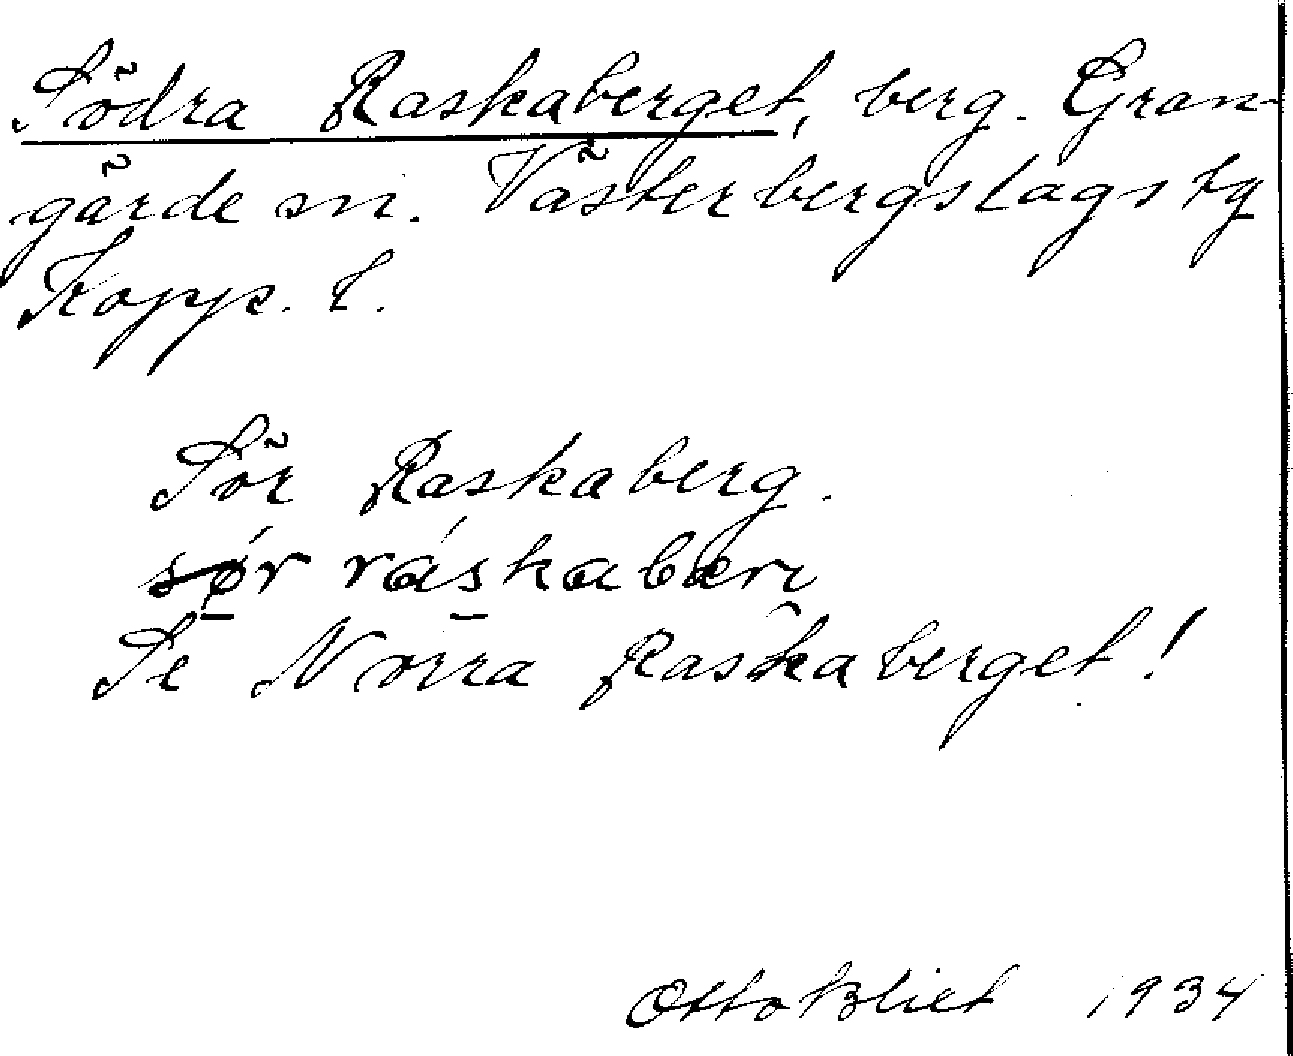 Södra Raskaberget, berg. Gran-
gärde sn. Västerbergslags tg
Kopp. l.
Sör Raskaberg.
sør ráskabæri
Se Norra Raskaberget!
Otto Blixt 1934